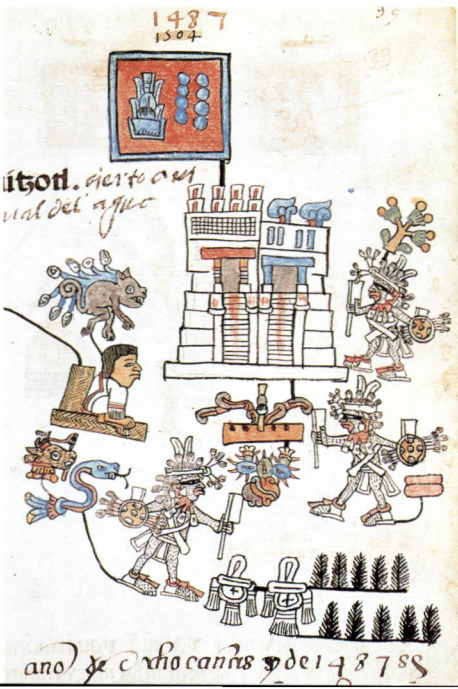 1487
1504
99
uitzotl. cierto an
ual del agua
ano de ocho cañas y de 1487 88